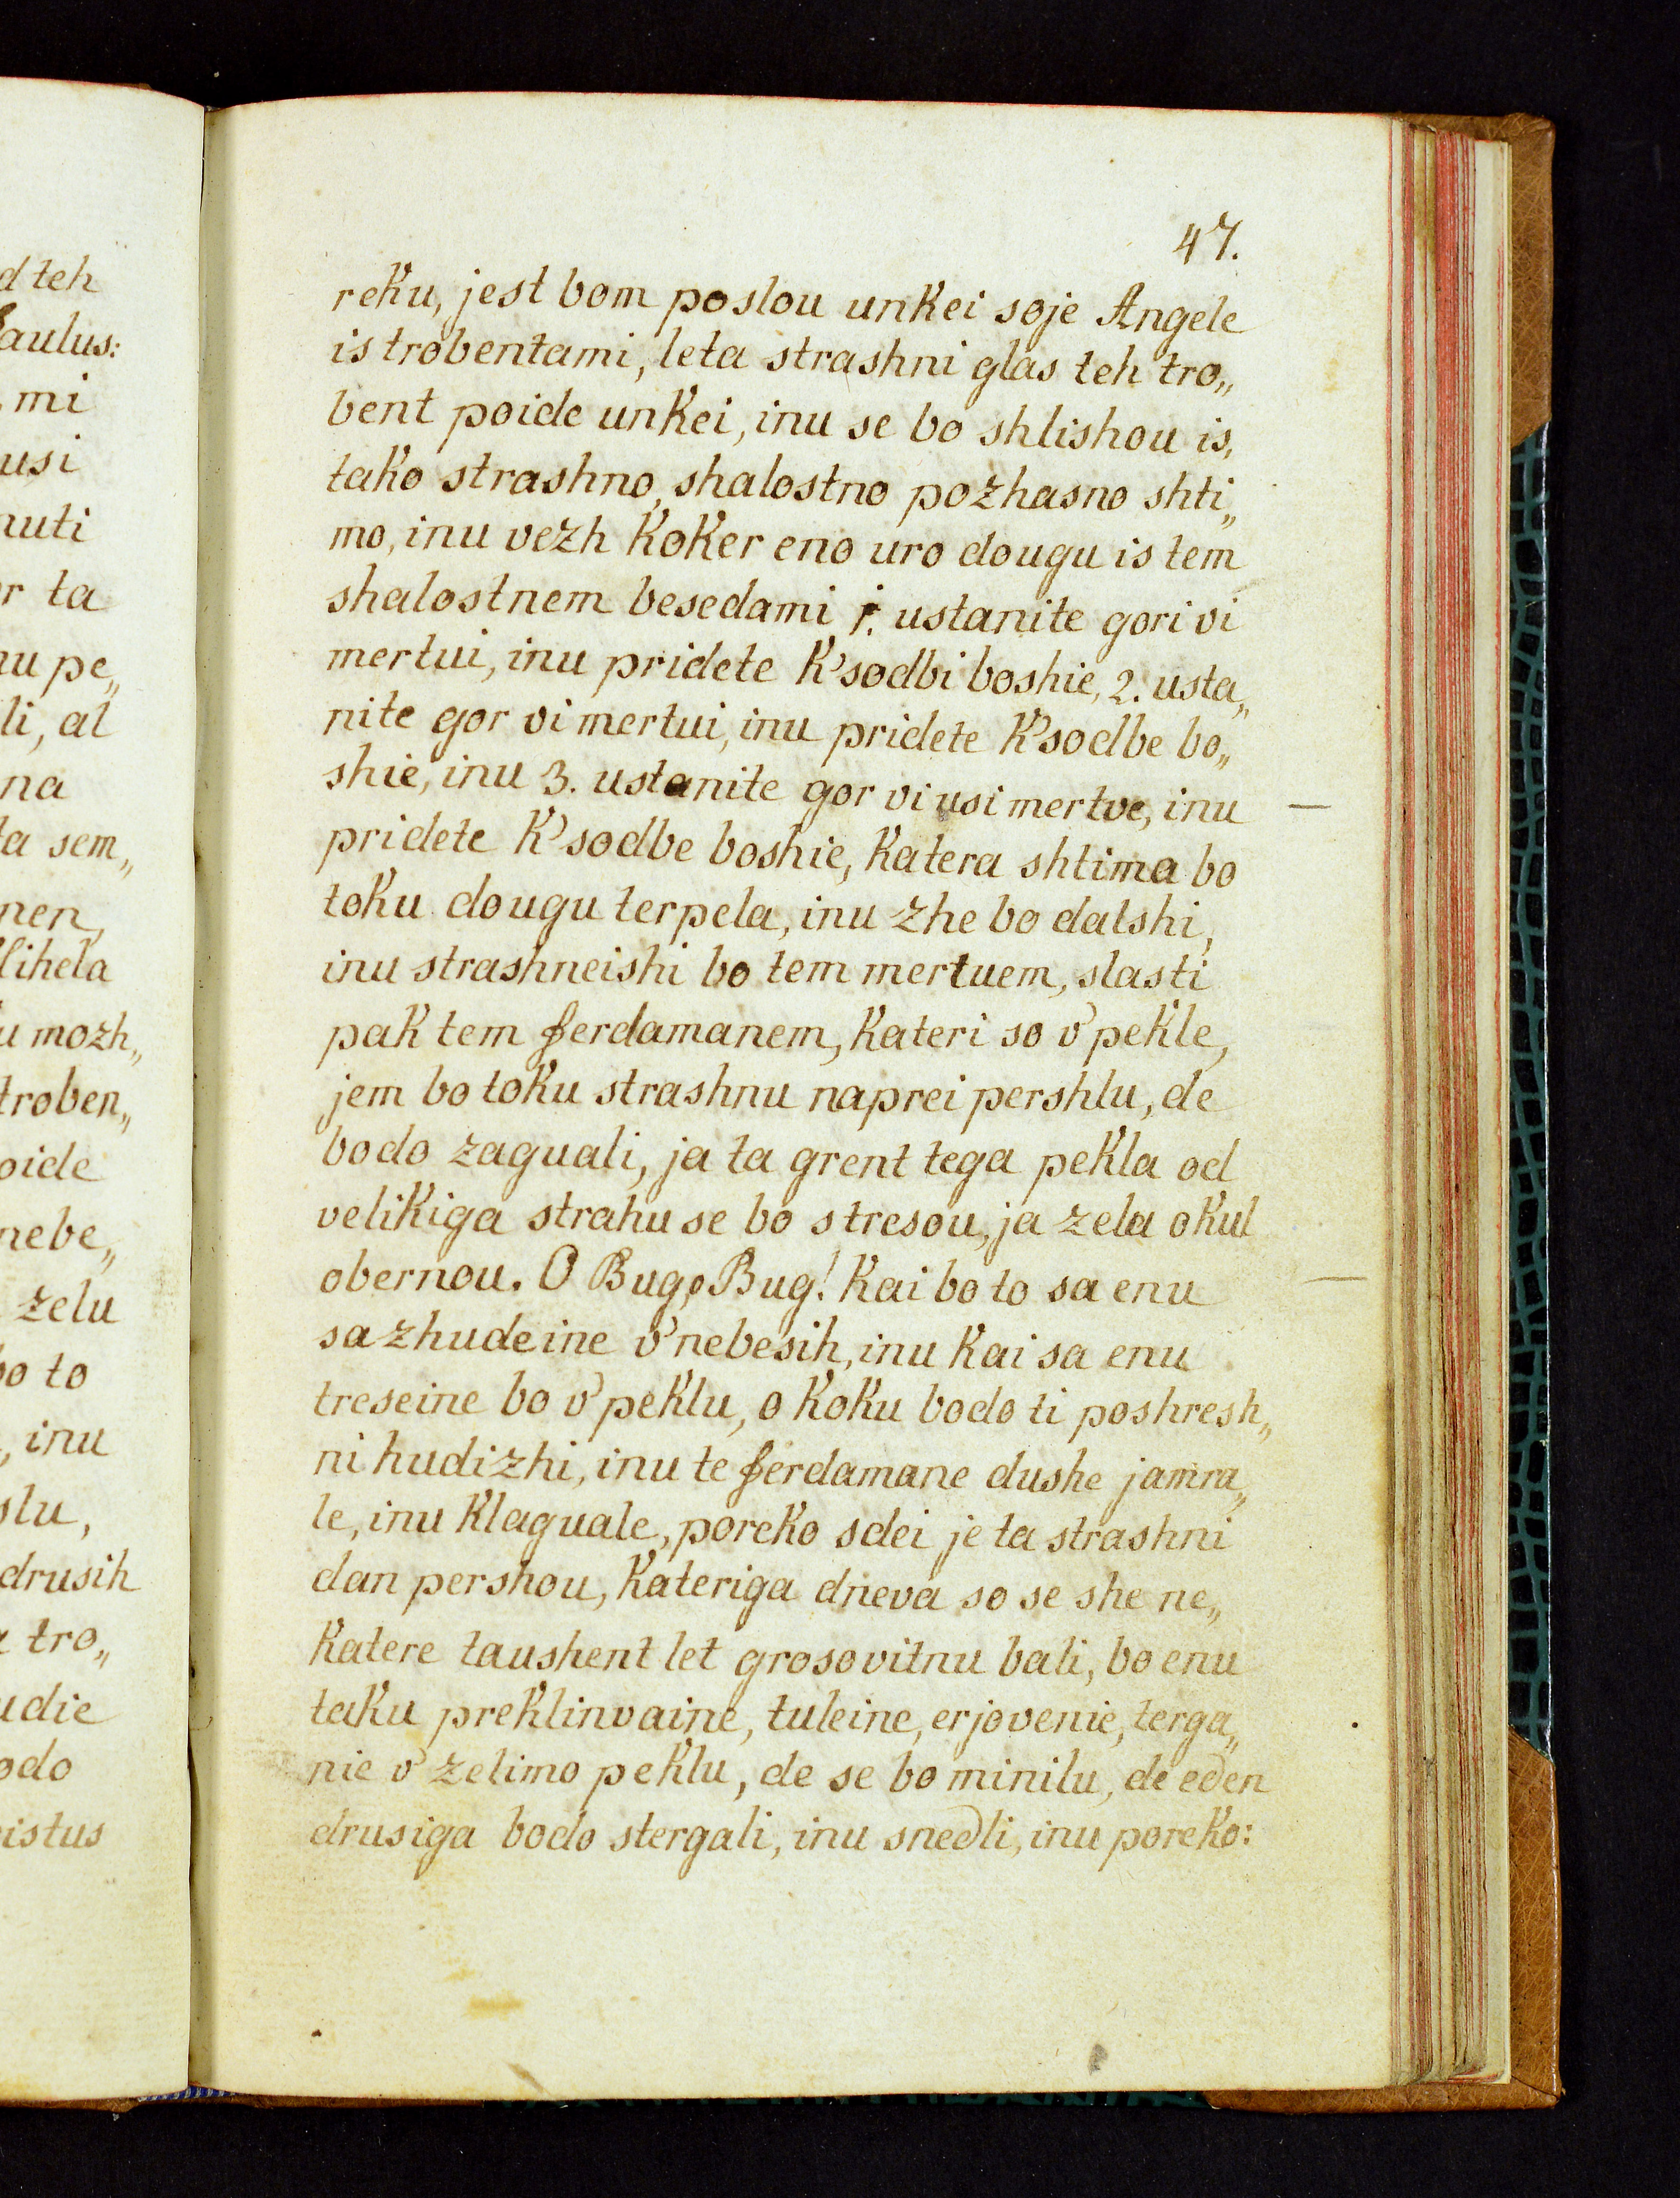 d teh
aulus:
mi
usi
nuti
r ta
nu pe„
li, al
na
ta sem„
nen,
lihela
u mozh„
troben„
oide
nebe„
zelu
bo to
, inu
slu,
drusih
a tro„
udie
odo
ristus
47.
reku, jest bom poslou unkei soje Angele
is trobentami, leta strashni glas teh tro„
bent poide unkei, inu se bo shlishou is,
tako strashno, shalostno pozhasno shti„
mo, inu vezh koker eno uro dougu is tem
shalostnem besedami 1. ustanite gori vi
mertui, inu pridete k'sodbi boshie, 2. usta„
nite gor vi mertui, inu pridete k'sodbe bo„
shie, inu 3. ustanite gor vi usi mertve, inu
pridete k'sodbe boshie, katera shtima bo
toku dougu terpela, inu zhe bo dalshi,
inu strashneishi bo tem mertuem, slasti
pak tem ferdamanem, kateri so v'pekle,
jem bo toku strashnu naprei pershlu, de
bodo zaguali, ja ta grent tega pekla od
velikiga strahu se bo stresou, ja zela okul
obernou. O Bug, o Bug! kai bo to sa enu
sazhudeine v'nebesih, inu kai sa enu
treseine bo v'peklu, o koku bodo ti poshresh„
ni hudizhi, inu te ferdamane dushe jamra„
le, inu klaguale, poreko sdei je ta strashni
dan pershou, kateriga dneva so se she ne„
katere taushent let grosovitnu bali, bo enu
taku preklinvaine, tuleine, erjovenie, terga„
nie v'zelimo peklu, de se bo minilu, de eden
drusiga bodo stergali, inu snedli, inu poreko: